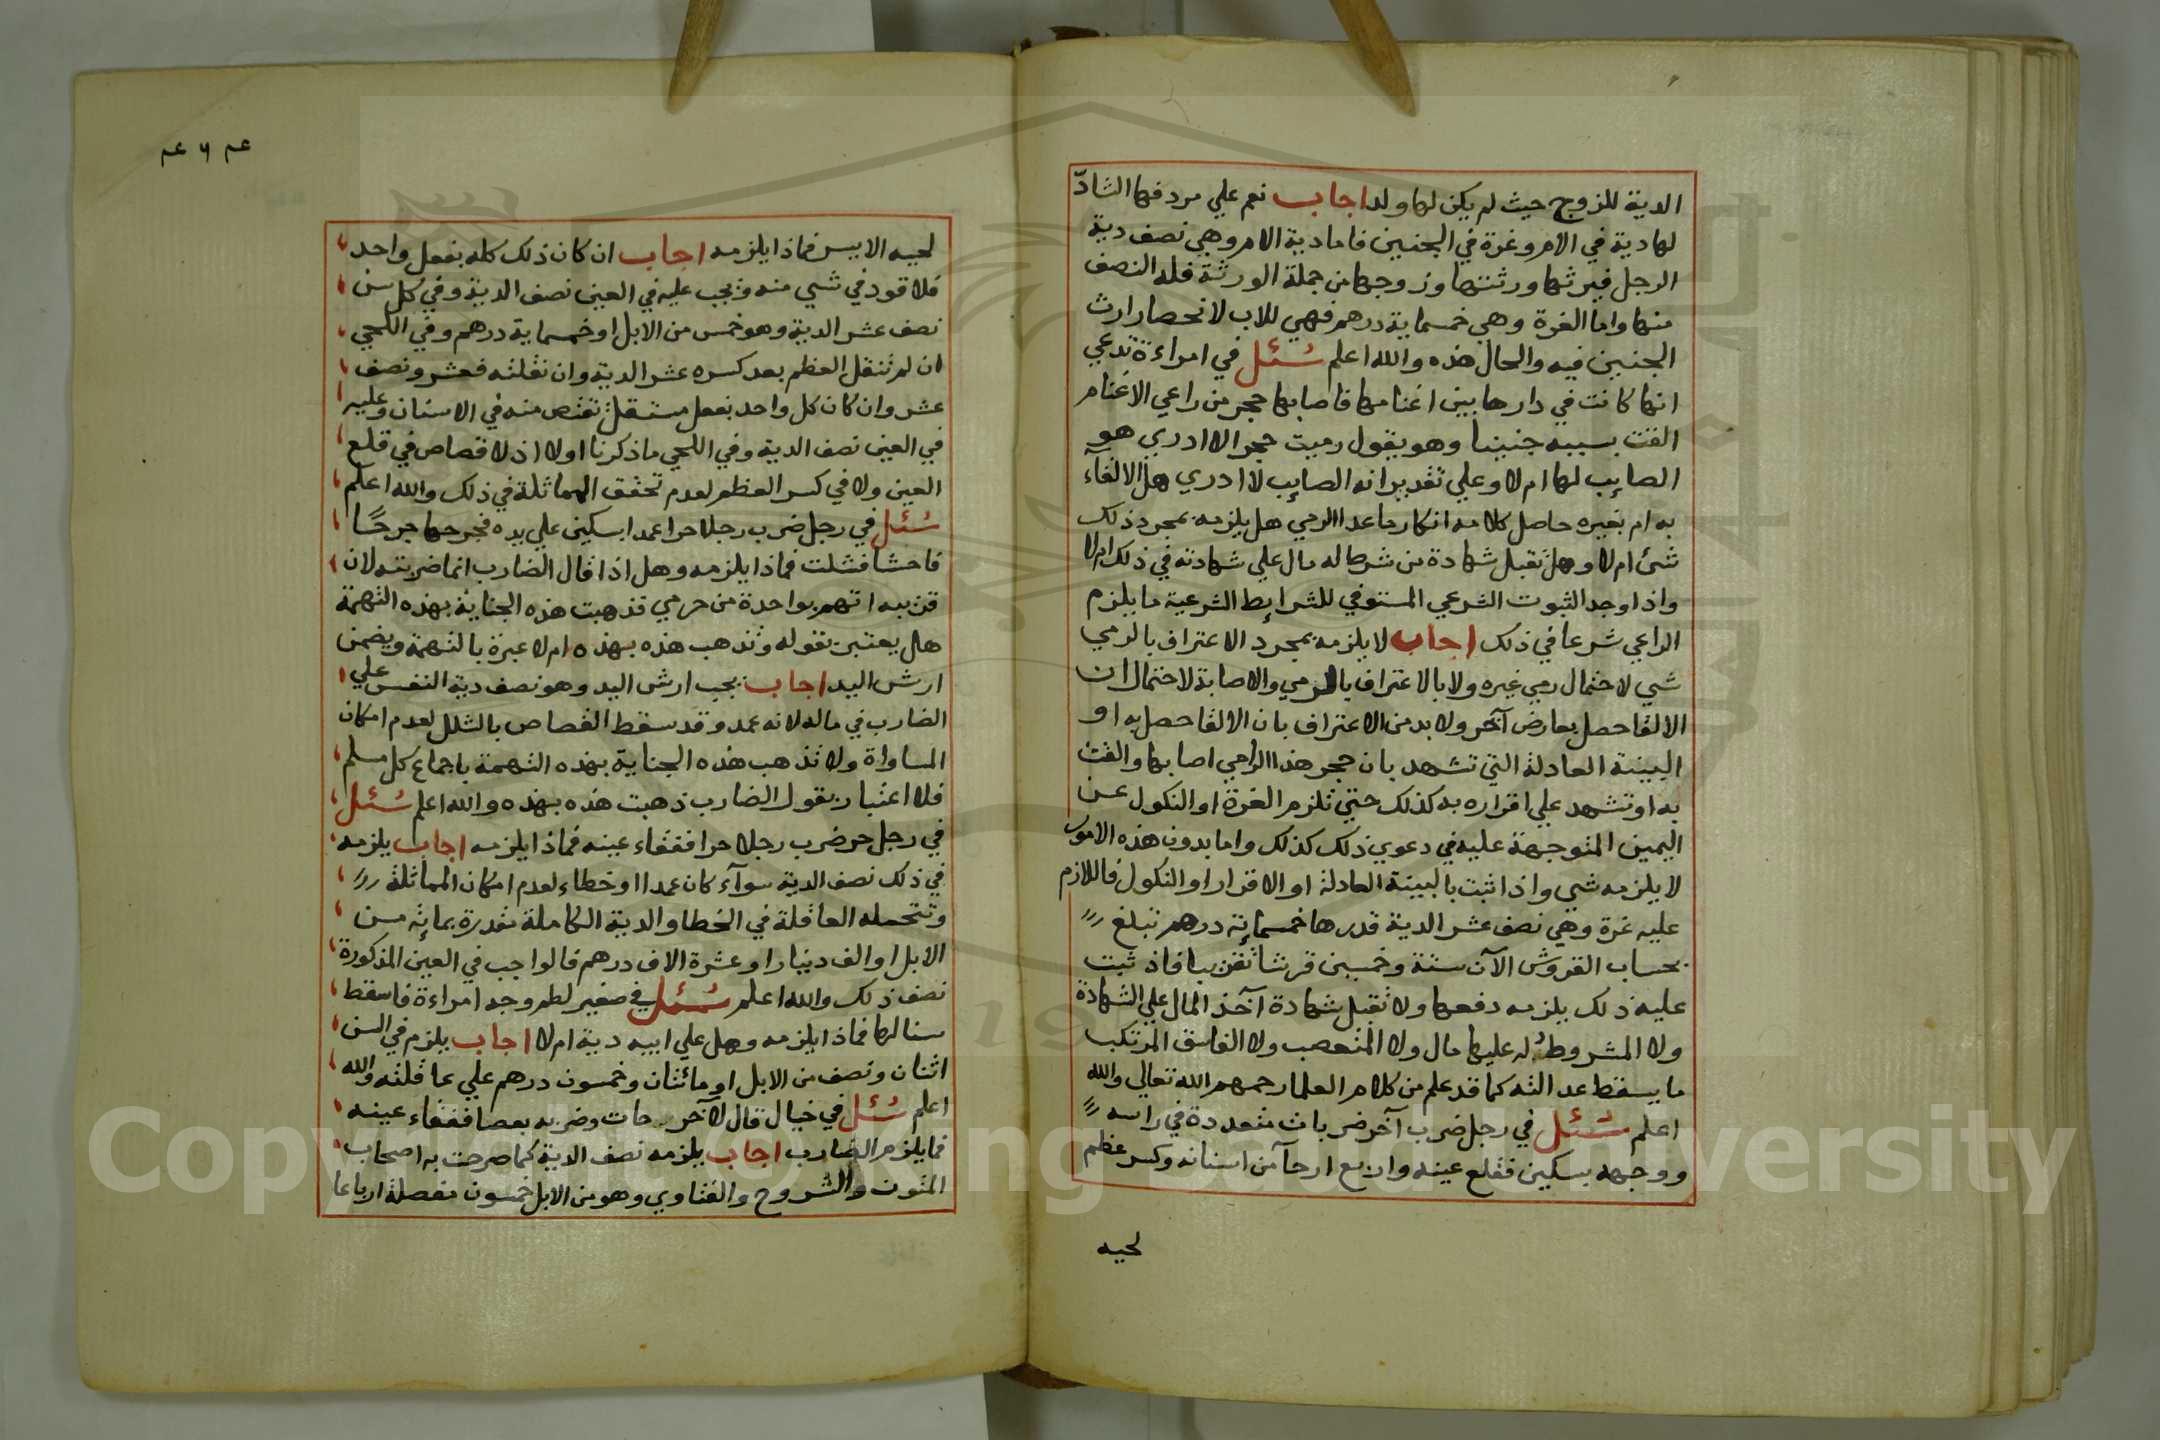 الدية للزوج حيث لم يكن لها ولد اجاب نعم علي مردفها الشادّ
لها دية في الام وغرة في الجنين فاما دية الام وهي نصف دية
الرجل فيرثها ورثتها وزوجها من جملة الورثة فله النصف
منها واما الغرة وهي خمسماية درهم فهي للاب لانحصار ارث
الجنين فيه والحال هذه والله اعلم سُئل في امراءة تدعي
انها كانت في دارها بين اغنامها فاصابها حجر من راعي الاغنام
القت بسببه جنينا وهو يقول رميت حجرا لا ادري هو
الصايب لها ام لا وعلي تقدير انه الصايب لا ادري هل الالقآء
به ام بغيره حاصل كلامه انكار ما عدا الرمي هل يلزمه بمجرد ذلك
شئ ام لا وهل تقبل شهادة من شرط له مال علي شهادته في ذلك ام لا
واذا وجد الثبوت الشرعي المستوفي للشرايط الشرعية ما يلزم
الراعي شرعا في ذلك اجاب لا يلزمه بمجرد الاعتراف بالرمي
شي لاحتمال رمي غيره ولا بالاعتراف بالرمي والاصابة لاحتمال ان
الالقا حصل بعارض آخر ولا بد من الاعتراف بان الالقا حصل به او
البينة العادلة التي تشهد بان حجر هذا الرامي اصابها والقت
به او تشهد علي اقراره به كذلك حتي تلزم الغرة او النكول عن
اليمين المتوجهة عليه في دعوي ذلك كذلك واما بدون هذه الامور
لا يلزمه شي واذا ثبت بالبينة العادلة او الاقرار او النكول فاللازم
عليه غرة وهي نصف عشر الدية قدرها خمسمائة درهم تبلغ
بحساب القروش الآن ستة وخمسين قرشا تقريبا فاذ ثبت
عليه ذلك يلزمه دفعها ولا تقبل شهادة آخذ المال علي الشهادة
ولا المشروط له عليها مال ولا المتعصب ولا الفاسق المرتكب
ما يسقط عدالته كما قد علم من كلام العلما رحمهم الله تعالي والله
اعلم سُئل في رجل ضرب آخر ضربات متعددة في راسه
ووجهه بسكين فقلع عينه واربع ارحآ من اسنانه وكسر عظم
لحيه
لحيه الايسر فماذا يلزمه اجاب ان كان ذلك كله بفعل واحد
فلا قود في شي منه ويجب عليه في العين نصف الدية وفي كل سن
نصف عشر الدية وهو خمس من الابل او خمسماية درهم وفي اللحي
ان لم تنقل العظم بعد كسره عشر الدية وان نقلته فعشر ونصف
عشر وان كان كل واحد بفعل مستقل تقتص منه في الاسنان وعليه
في العين نصف الدية وفي اللحي ما ذكرنا اولا اذ لا قصاص في قلع
العين ولا في كسر العظم لعدم تحقق المماثلة في ذلك والله اعلم
سُئل في رجل ضرب رجلا حرا عمدا بسكين علي يده فجرحها جرحًا
فاحشا فشلت فماذا يلزمه وهل اذا قال الضارب انما ضربته لان
قريبه اتهم بواحدة من حرمي فذهبت هذه الجناية بهذه التهمة
هل يعتبر بقوله وتذهب هذه بهذه ام لا عبرة بالتهمة ويضمن
ارش اليد اجاب يجب ارش اليد وهو نصف دية النفس علي
الضارب في ماله لانه عمد وقد سقط القصاص بالشلل لعدم امكان
المساواة ولا تذهب هذه الجناية بهذه التهمة باجماع كل مسلم
فلا اعتبار بقول الضارب ذهبت هذه بهذه والله اعلم سُئل
في رجل حر ضرب رجلا حرا ففقاء عينه فماذا يلزمه اجاب يلزمه
في ذلك نصف الدية سوآء كان عمدا او خطاء لعدم امكان المماثلة
وتتحمله العاقلة في الخطا والدية الكاملة مقدرة بمائة من
الابل او الف دينار او عشرة الاف درهم فالواجب في العين المذكورة
نصف ذلك والله اعلم سُئل في صغير لطم وجه امراءة فاسقط
سنا لها فماذا يلزمه وهل علي ابيه دية ام لا اجاب يلزم في السن
اثنان ونصف من الابل او مائتان وخمسون درهم علي عاقلته والله
اعلم سُئل في خيال قال لآخر حات وضربه بعصا ففقاء عينه
فما يلزم الضارب اجاب يلزمه نصف الدية كما صرحت به اصحاب
المتون والشروح والفتاوي وهو من الابل خمسون مفصلة ارباعا
Copyright © King Saud University